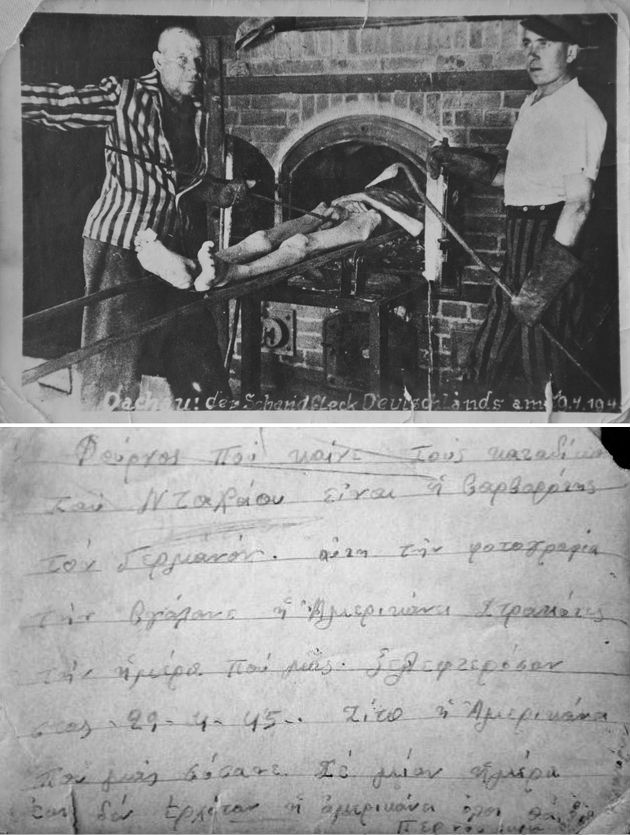 Dachau: der Schandfleck Deutschlands am 29.4.194
Φούρνος πού καίνε τους καταδίκο
του Νταχάου είναι ἡ βαρβαρότης
τόν Γερμανόν. αὐτη τήν φοτογραφία
τήν βγάλανε ἡ Ἀμερικάνι Στρατιότες
τήν ἡμέρα πού μᾶς ξελεφτερόσαν
στας - 29 - 4 - 45 - Ζίτο ἡ Ἀμερικάνι
πού μᾶς σόσανε. Σέ μίαν ἡμέρα
ἐάν δέν ἐρχόταν ἡ ἀμερικάνι όλοι θά